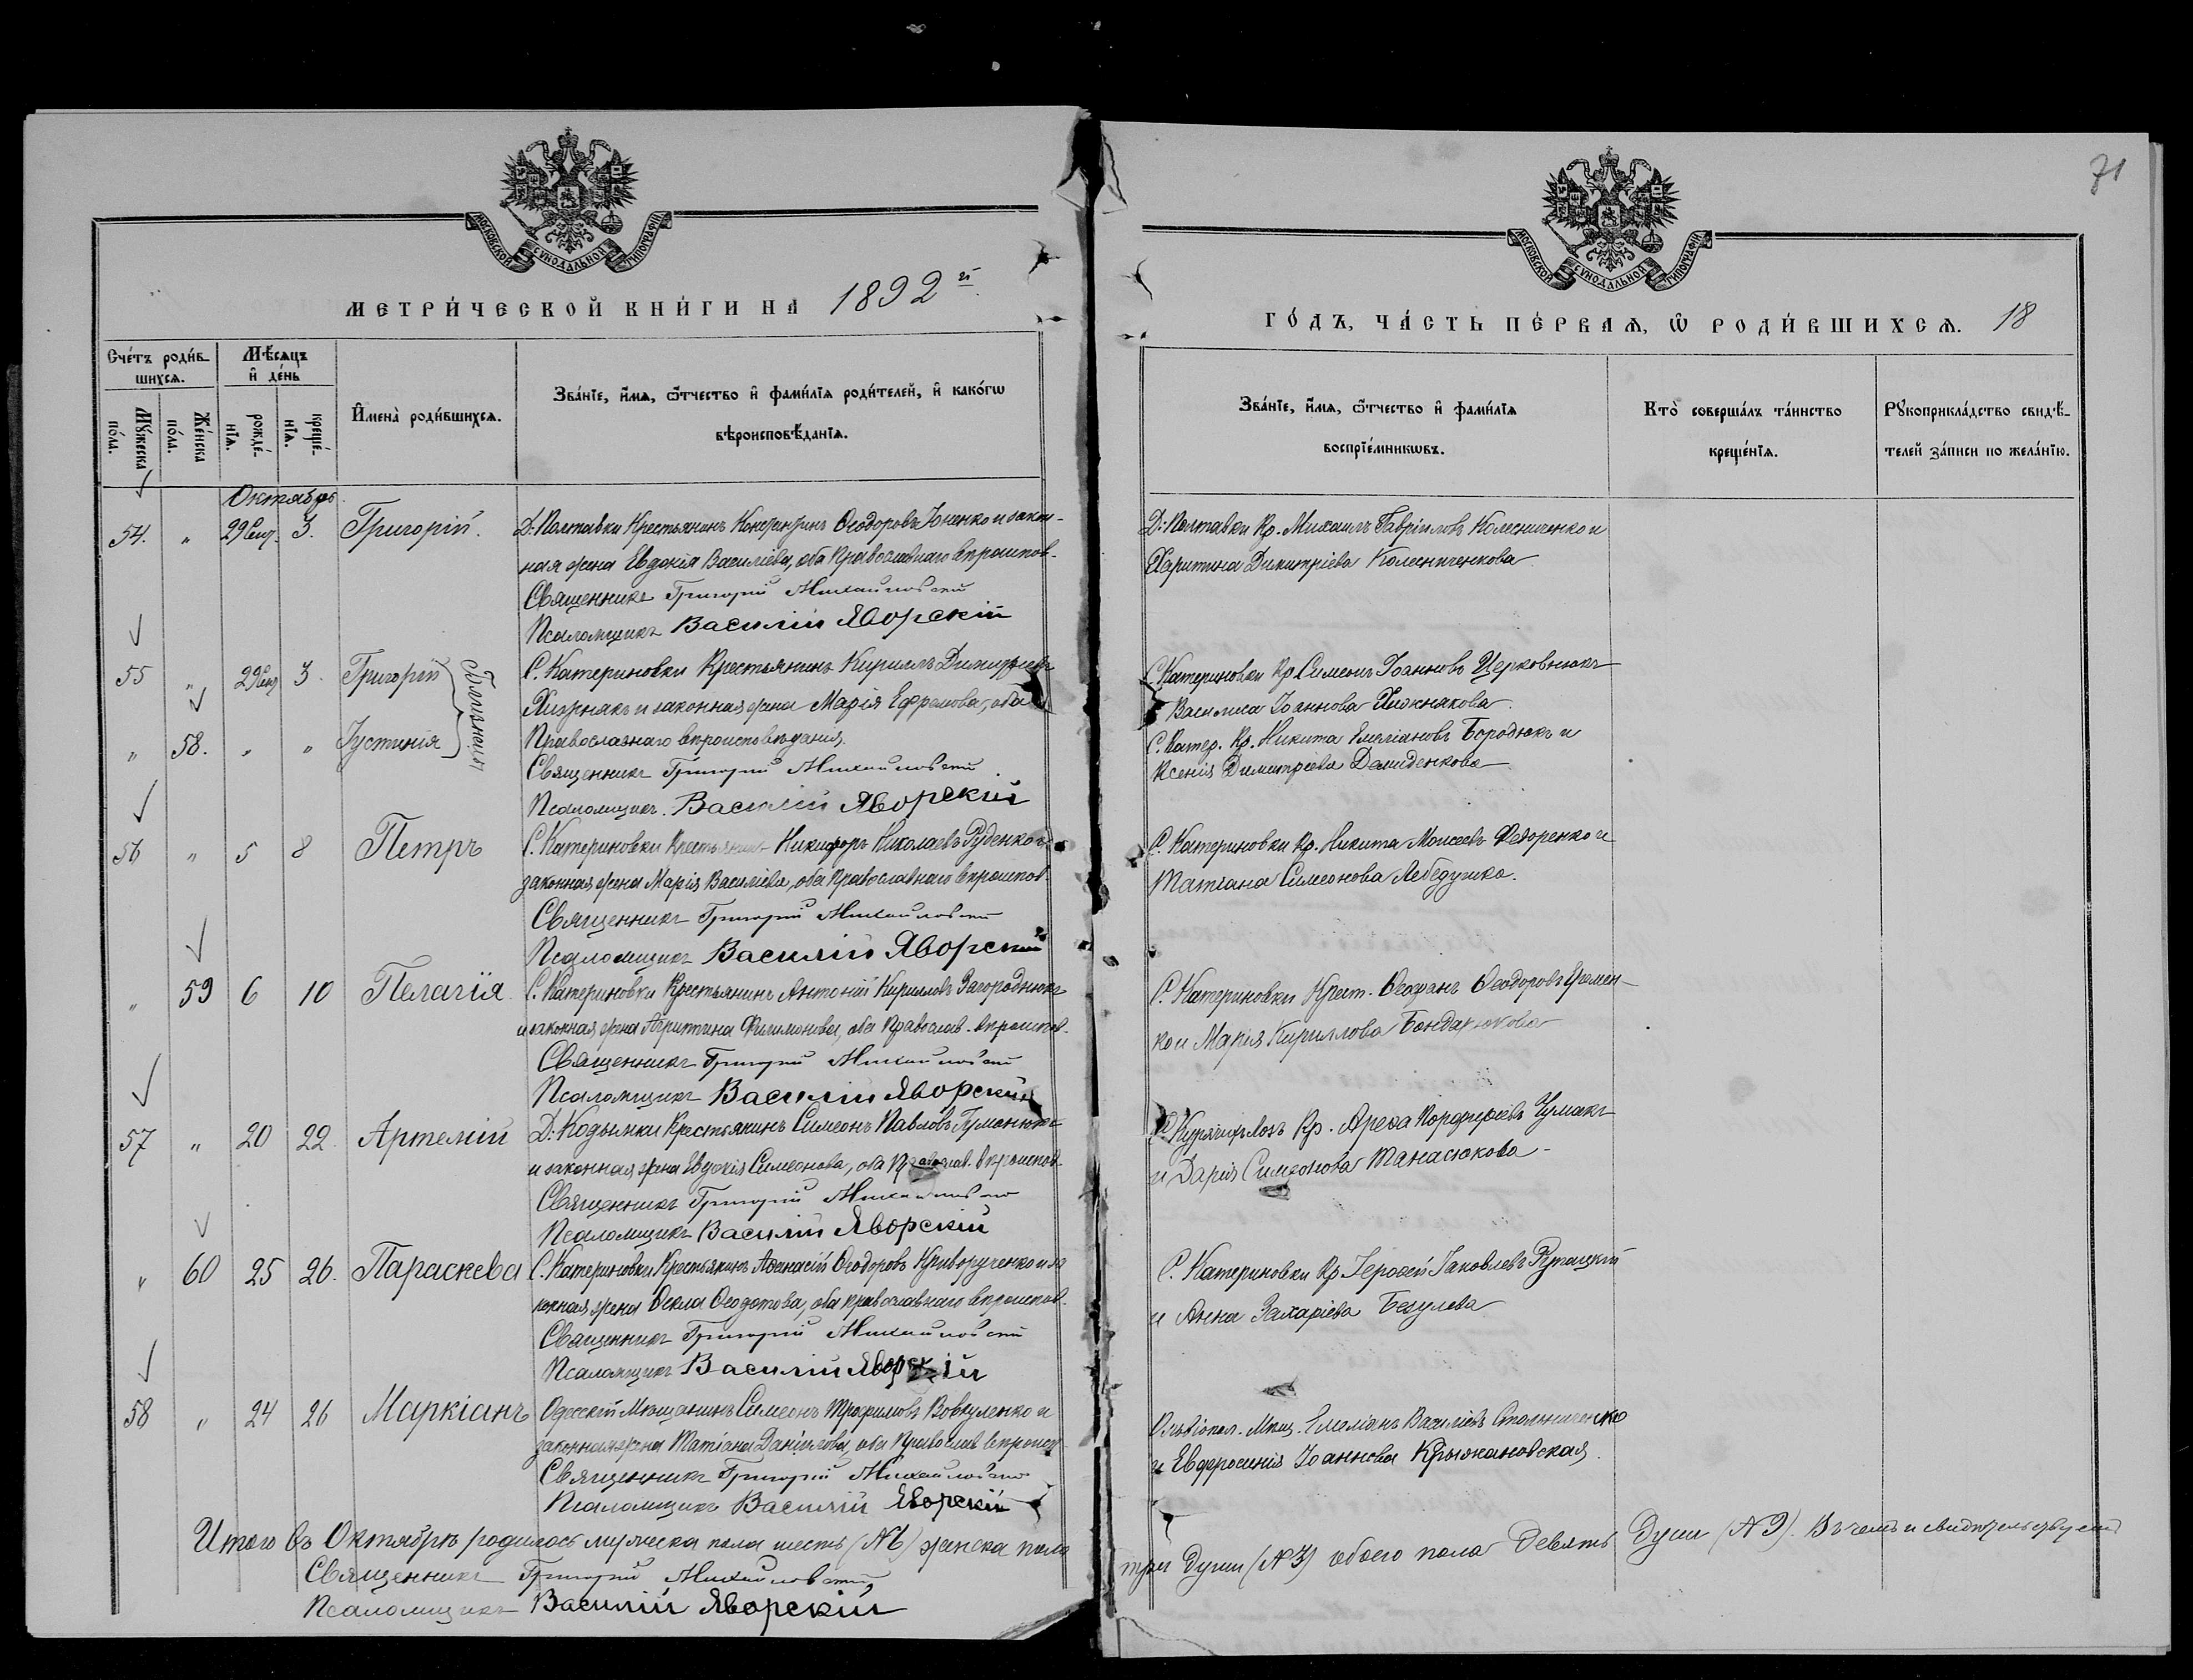 71
МОСКОВСКОЙ СѴНОДАЛЬНОЙ ТИПОГРАФІИ
МОСКОВСКОЙ СѴНОДАЛЬНОЙ ТИПОГРАФІИ
МЕТРИ́ЧЕСКОЙ КНИ́ГИ НА 1892 й
ГО́ДЪ, ЧА́СТЬ ПЕ́РВАѦ, Ѡ҆ РОДИ́ВШИХСѦ. 18
Сче́тъ роди́в-
шихсѧ.
Мꙋ́жеска по́ла.
Же́нска по́ла.
Мѣ́сѧцъ
и҆ де́нь
рожде́-
нїѧ.
креще́-
нїѧ.
И҆мена̀ роди́вшихсѧ.
Зва́нїе, и҆́мѧ, ѻ҆́тчество и҆ фами́лїѧ роди́телей, и҆ како́гѡ
вѣроисповѣ́данїѧ.
Зва́нїе, и҆́мѧ, ѻ҆́тчество и҆ фами́лїѧ
воспрїе́мникѡвъ.
Кто̀ соверша́лъ та́инство
креще́нїѧ.
Рꙋкоприкла́дство свидѣ́-
телей за́писи по жела́нїю.
Октябрь
54. " 29 Сент. 3. Григорій. Д: Полтавки Крестьянинъ Константинъ Ѳеодоровъ Іоненко и закон-
ная жена Евдокія Василіева, оба Православнаго вѣроиспов.
Священникъ Григорій Михайловскій
Псаломщикъ Василій Яворскій
Д: Полтавки Кр. Михаилъ Гавріиловъ Колесниченко и
Харитина Димитріева Колесниченкова
55 " 29 Сент 3. Григорій С. Катериновки Крестьянинъ Кириллъ
Близнецы
и законная жена Марія Ефремова, оба
" 58. " " Іустинія Православнаго вѣроисповѣданія.
Священникъ Григорій Михайловскій
Псаломщикъ. Василій Яворскій
С. Катериновки Кр. Симеонъ Іоанновъ Церковнюкъ
Василиса Іоаннова Хижнякова
С. Катер. Кр. Никита Емеліановъ Бородюкъ и
Ксенія Димитріева Демиденкова
56 " 5 8 Петръ С. Катериновки Крестьянинъ Никифоръ Николаевъ Руденко и
законная жена Марія Василіева, оба Православнаго вѣроиспов.
Священникъ Григорій Михайловскій
Псаломщикъ Василій Яворскій
С. Катериновки Кр. Никита Моисеевъ Федоренко и
Татіана Симеонова Лебедушка.
" 59 6 10 Пелагія С. Катериновки Крестьянинъ Антоній Кирилловъ Загороднюкъ
и законная жена Агриппина Филимонова, оба Православ. вѣроиспов.
Священникъ Григорій Михайловскій
Псаломщикъ Василій Яворскій
С. Катериновки Крест. Ѳеофанъ Ѳеодоровъ Еремен-
ко и Марія Кириллова Бондарюкова
57 " 20 22. Артемій Д: Кодымки Крестьянинъ Симеонъ Павловъ Гуменюкъ
и законная жена Евдокія Симеонова, оба Православ. вѣроиспов.
Священникъ Григорій Михайловскій
Псаломщикъ Василій Яворскій
Кр. Ареѳа Порфиріевъ Чумакъ
и Дарія Симеонова Танасюкова
" 60 25 26. Параскева С. Катериновки Крестьянинъ Аѳанасій Ѳеодоровъ Криворученко и за
конная жена Ѳекла Ѳеодотова, оба православнаго вѣроиспов.
Священникъ Григорій Михайловскій
Псаломщикъ Василій Яворскій
С. Катериновки Кр Іероѳей Іаковлевъ
и Анна Захаріева
58 " 24 26 Маркіанъ Одесскій Мѣщанинъ Симеонъ Трофимовъ Вовкуленко и
законная жена Татіана Даніилова, оба Православ вѣроисп
Священникъ Григорій Михайловскій
Псаломщикъ Василій Яворскій
Ольвіопол. Мѣщ. Емеліанъ Василіевъ Стольниченко
и Евфросинія Іоаннова Крыжановская.
Итого въ Октябрѣ родилось мужеска пола шесть (№ 6) женска пола три души (№ 3) обоего пола девять Души (№ 9). Въ чемъ и свидѣтельствуемъ
Священникъ Григорій Михайловскій
Псаломщикъ Василій Яворскій